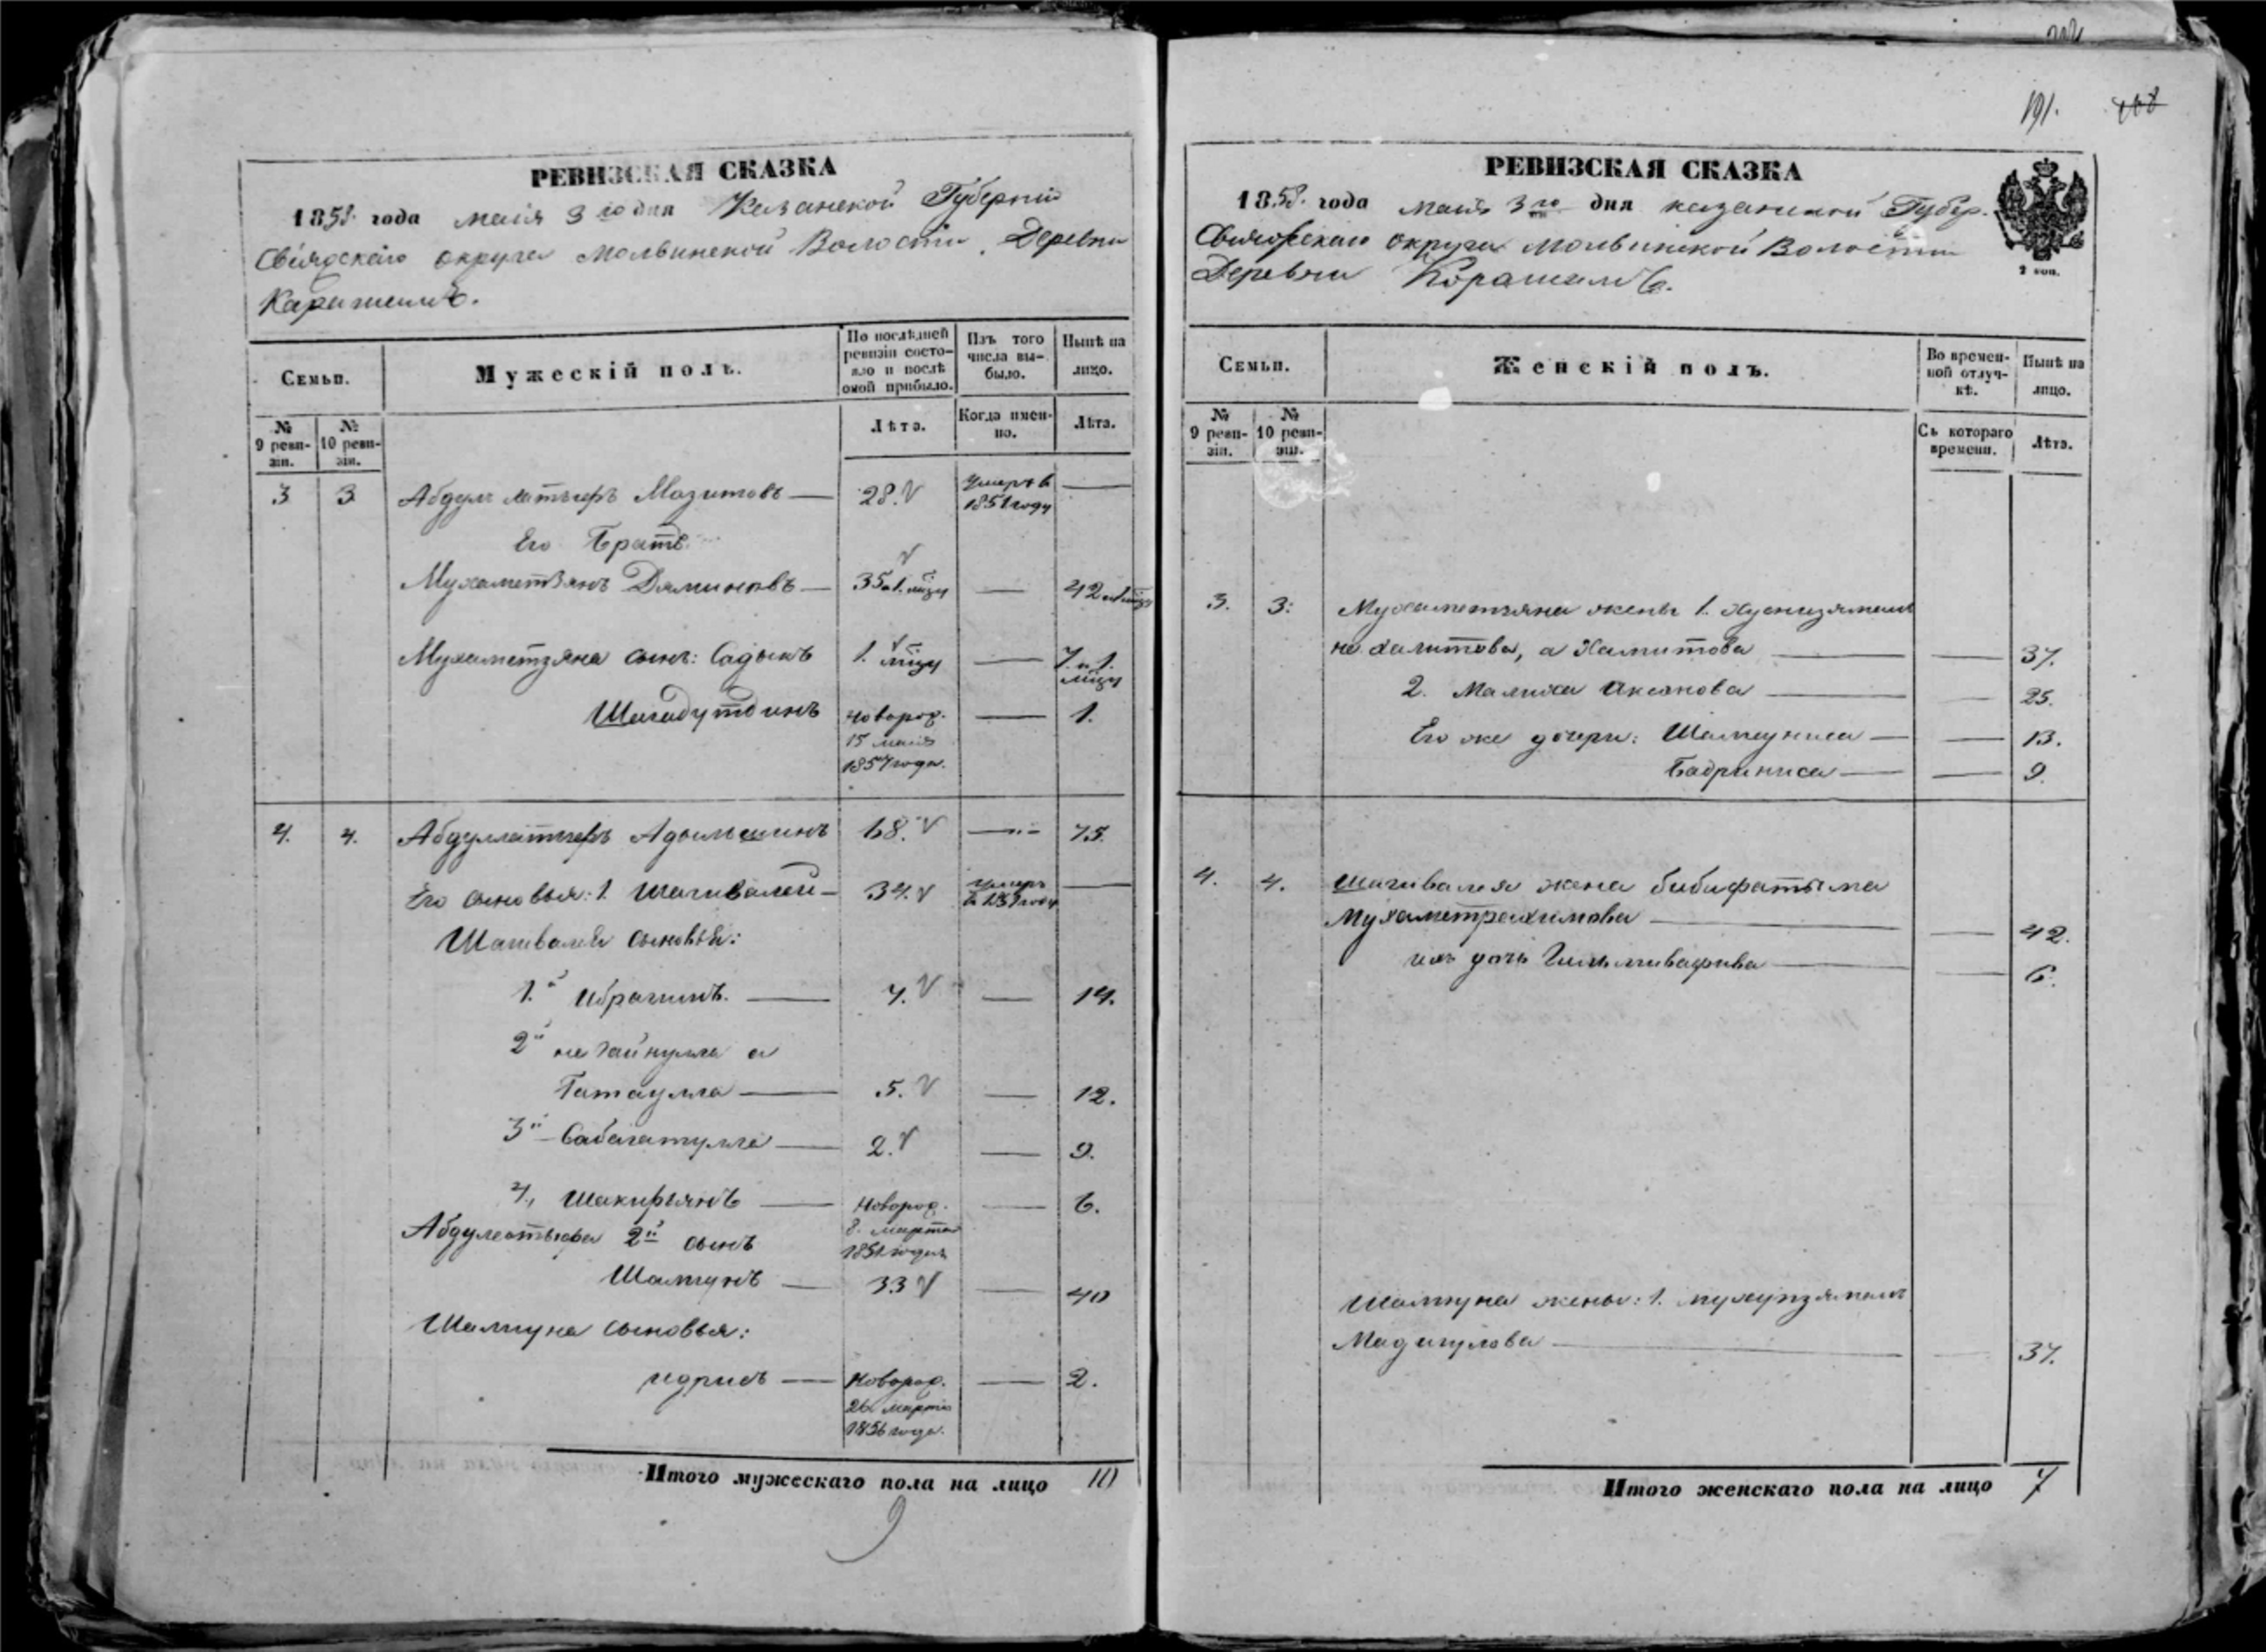 191.
РЕВИЗСКАЯ СКАЗКА
1858 года маія 3го дня Казанской Губерніи
Свіяжскаго округа Мольвинской Волости Деревни
Карашемъ.
Семьи.
Мужескій полъ.
По послѣдней ревизіи состояло и послѣ оной прибыло.
Изъ того числа выбыло.
Нынѣ на лицо.
№ 9 ревизіи.
№ 10 ревизіи.
Лѣта.
Когда именно.
Лѣта.
3 3 28. Умеръ в 1851 году —
Его братъ
Мухаметзянъ — 35 — 42
Мухаметзяна сынъ: Садыкъ 1. — 7 и 1.
Шагабутдинъ новорож. 15 маія 1857 года. — 1.
4. 4. Абдуллатыфъ 68. — 75.
Его сыновья: 1. Шагивалей — 34. умеръ —
Шагивалея сыновья:
1й Ибрагимъ. — 7. — 14.
2й не Гайнулла а
Гатаулла — 5. — 12.
3й Сабагатулла — 2. — 9.
4, Шакирзянъ — Новорож. 8. марта 1851 года — 6.
Абдулатыфа 2й сынъ
Шамгунъ — 33 — 40
Шамгуна сыновья:
Идрисъ — Новорож. 26 марта 1856 года. — 2.
Итого мужескаго пола на лицо 10
9
РЕВИЗСКАЯ СКАЗКА
1858. года маія 3го дня казанской Губер.
Свіяжскаго округа Мольвинской Волости
Деревни Корашемъ.
2 коп.
Семьи.
Женскій полъ.
Во временной отлучкѣ.
Нынѣ на лицо.
№ 9 ревизіи.
№ 10 ревизіи.
Съ котораго времени.
Лѣта.
3. 3. Мухаметзяна жены 1.
не Халитова, а Хамитова — — 37.
2. Малиха — — 25.
Его же дочери: — — 13.
Бадриниса — — 9.
4. 4. Шагивалея жена Бибифатыма
Мухаметрахимова — — 42.
ихъ дочь — — 6.
Шамгуна жены: 1.
— — 37.
Итого женскаго пола на лицо 7